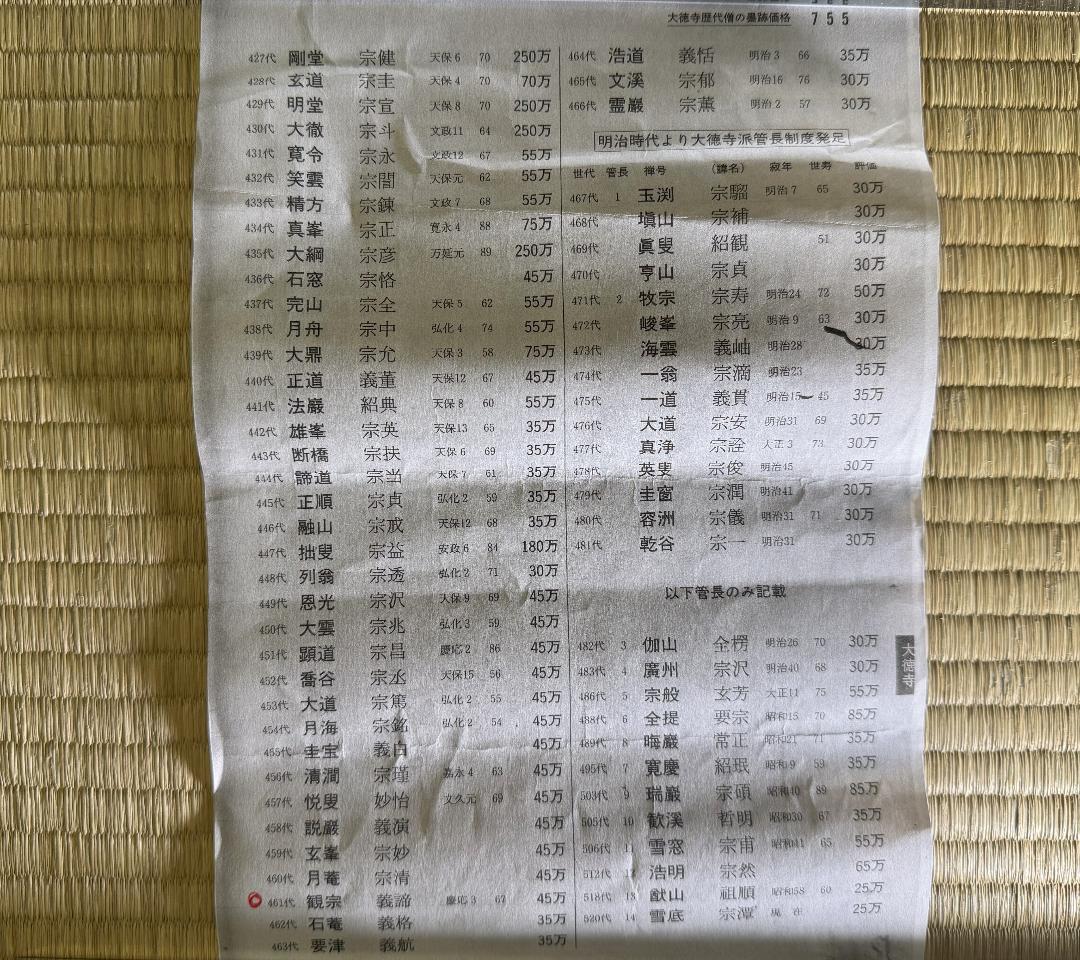 大徳寺歴代僧の墨跡価格 755
427代 剛堂 宗健 天保6 70 250万
428代 玄道 宗圭 天保4 70 70万
429代 明堂 宗宣 天保8 70 250万
430代 大徹 宗斗 文政11 64 250万
431代 寛令 宗永 文政12 67 55万
432代 笑雲 宗誾 天保元 62 55万
433代 精方 宗錬 文政7 68 55万
434代 真峯 宗正 寛永4 88 75万
435代 大綱 宗彦 万延元 89 250万
436代 石窓 宗恪 45万
437代 完山 宗全 天保5 62 55万
438代 月舟 宗中 弘化4 74 55万
439代 大鼎 宗允 天保3 58 75万
440代 正道 義董 天保12 67 45万
441代 法巌 紹典 天保8 60 55万
442代 雄峯 宗英 天保13 65 35万
443代 断橋 宗扶 天保6 69 35万
444代 諦道 宗当 天保7 61 35万
445代 正順 宗貞 弘化2 59 35万
446代 融山 宗戒 天保12 68 35万
447代 拙叟 宗益 安政6 84 180万
448代 列翁 宗透 弘化2 71 30万
449代 恩光 宗沢 天保9 69 45万
450代 大雲 宗兆 弘化3 59 45万
451代 顕道 宗昌 慶応2 86 45万
452代 喬谷 宗丞 天保15 56 45万
453代 大道 宗篤 弘化2 55 45万
454代 月海 宗銘 弘化2 54 45万
455代 圭宝 義白 45万
456代 清澗 宗瑾 嘉永4 63 45万
457代 悦叟 妙怡 文久元 69 45万
458代 説巌 義演 45万
459代 玄峯 宗妙 45万
460代 月菴 宗清 45万
461代 観宗 義諦 慶応3 67 45万
462代 石菴 義格 35万
463代 要津 義航 35万
464代 浩道 義恬 明治3 66 35万
465代 文溪 宗郁 明治16 76 30万
466代 霊巌 宗薫 明治2 57 30万
明治時代より大徳寺派管長制度発足
世代 管長 禅号 (諱名) 寂年 世寿 評価
467代 1 玉渕 宗騮 明治7 65 30万
468代 塡山 宗補 30万
469代 眞叟 紹観 51 30万
470代 亨山 宗貞 30万
471代 2 牧宗 宗寿 明治24 72 50万
472代 峻峯 宗亮 明治9 63 30万
473代 海雲 義岫 明治28 30万
474代 一翁 宗滴 明治23 35万
475代 一道 義貫 明治15 45 35万
476代 大道 宗安 明治31 69 30万
477代 真浄 宗詮 大正3 73 30万
478代 英叟 宗俊 明治45 30万
479代 圭窗 宗潤 明治41 30万
480代 容洲 宗儀 明治31 71 30万
481代 乾谷 宗一 明治31 30万
以下管長のみ記載
482代 3 伽山 全楞 明治26 70 30万
483代 4 廣州 宗沢 明治40 68 30万
486代 5 宗般 玄芳 大正11 75 55万
488代 6 全提 要宗 昭和15 70 85万
489代 8 晦巌 常正 昭和21 71 35万
495代 7 寛慶 紹珉 昭和9 59 35万
503代 9 瑞巌 宗碩 昭和40 89 85万
505代 10 歓溪 哲明 昭和30 67 35万
506代 11 雪窓 宗甫 昭和41 65 55万
512代 12 浩明 宗然 65万
518代 13 猷山 祖順 昭和58 60 25万
520代 14 雪底 宗潭 現在 25万
大徳寺